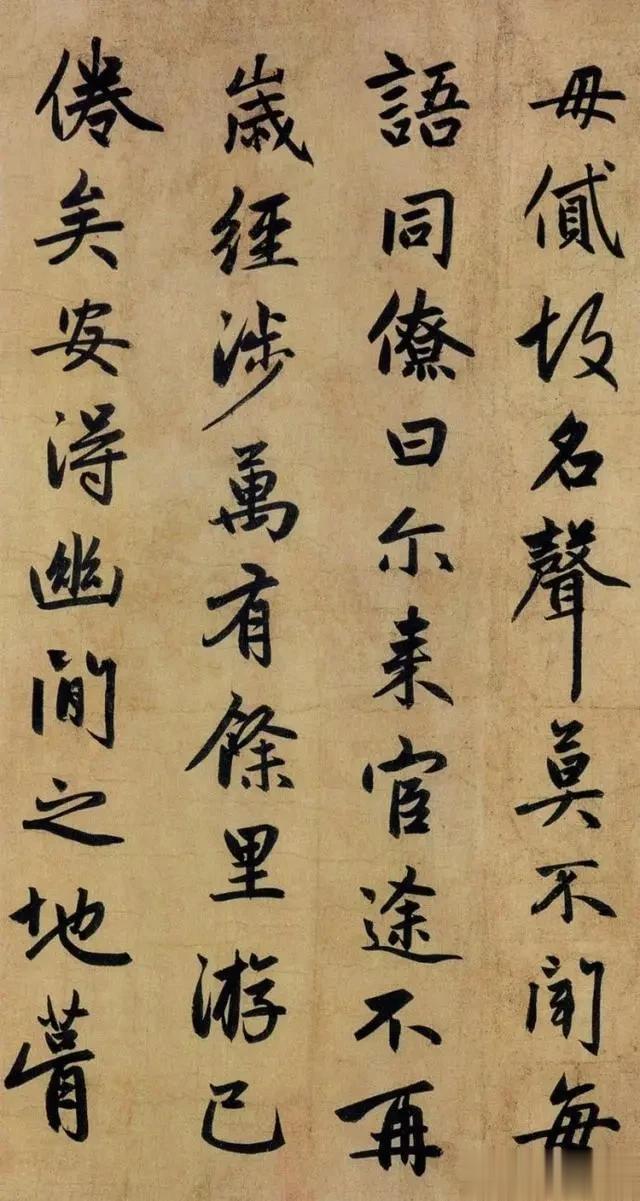 毋貸故名聲莫不聞每
語同僚曰尓来宦途不再
歲經涉萬有餘里游已
倦矣安得幽閒之地